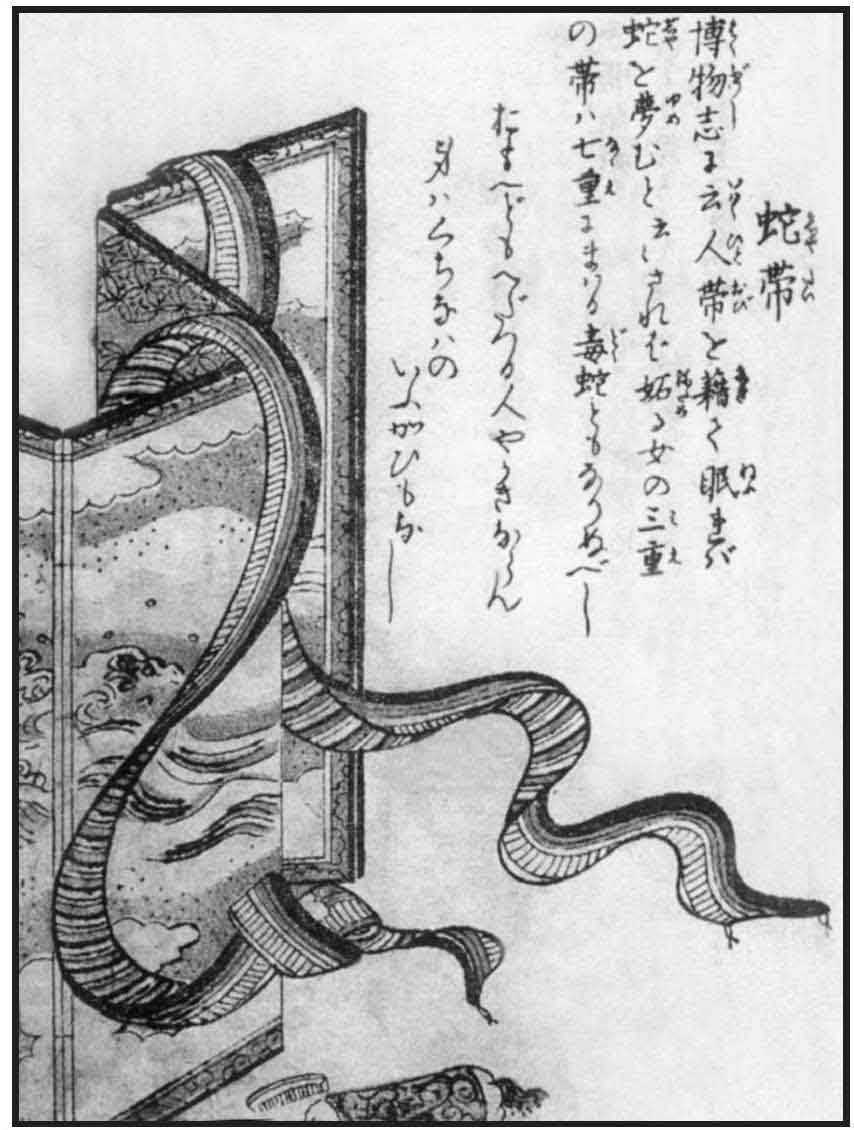 蛇帯
博物志に云人帯を藉て眠れば
蛇を夢むと云〻されば妬る女の三重
の帯ハ七重にまハる毒蛇ともなりぬべし
おもへどもへだつる人やかきならん
身ハくちなハの
いふかひもなし